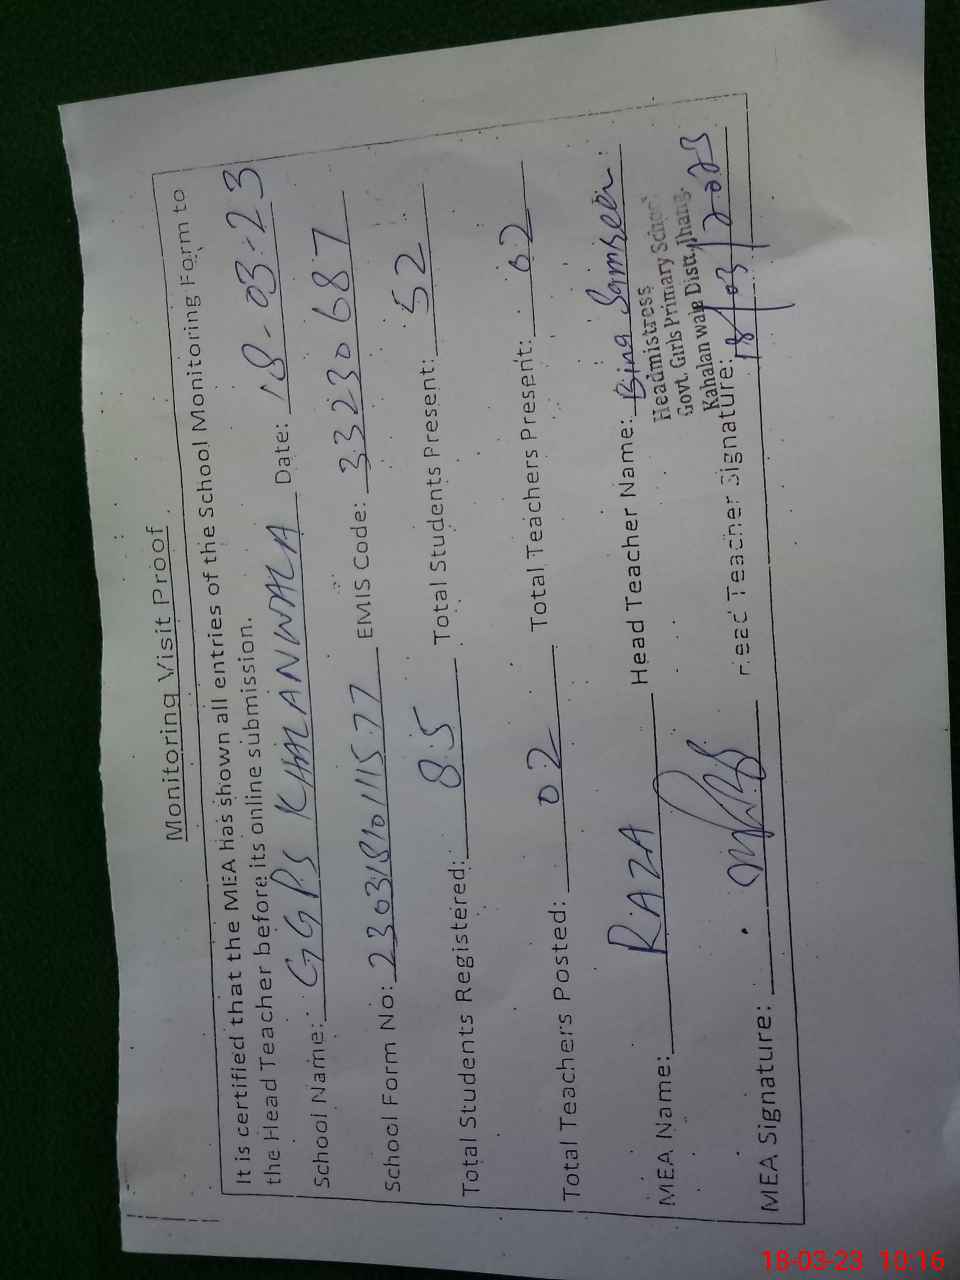 Monitoring Visit Proof
It is certified that the MEA has shown all entries of the School Monitoring Form to
the Head Teacher before its online submission.
School Name: GGPS KHALANWALA Date: 18-03-23
School Form No: 23031810111577 EMIS Code: 33230687
Total Students Registered: 85 Total Students Present: 52
Total Teachers Posted: 02 Total Teachers Present: 02
MEA Name: RAZA Head Teacher Name: Bina
Headmistress
Govt. Girls Primary School
Kahalan wala Distt, Jhang.
MEA Signature: Head Teacher Signature: 18/03/2023
18-03-23 10:16